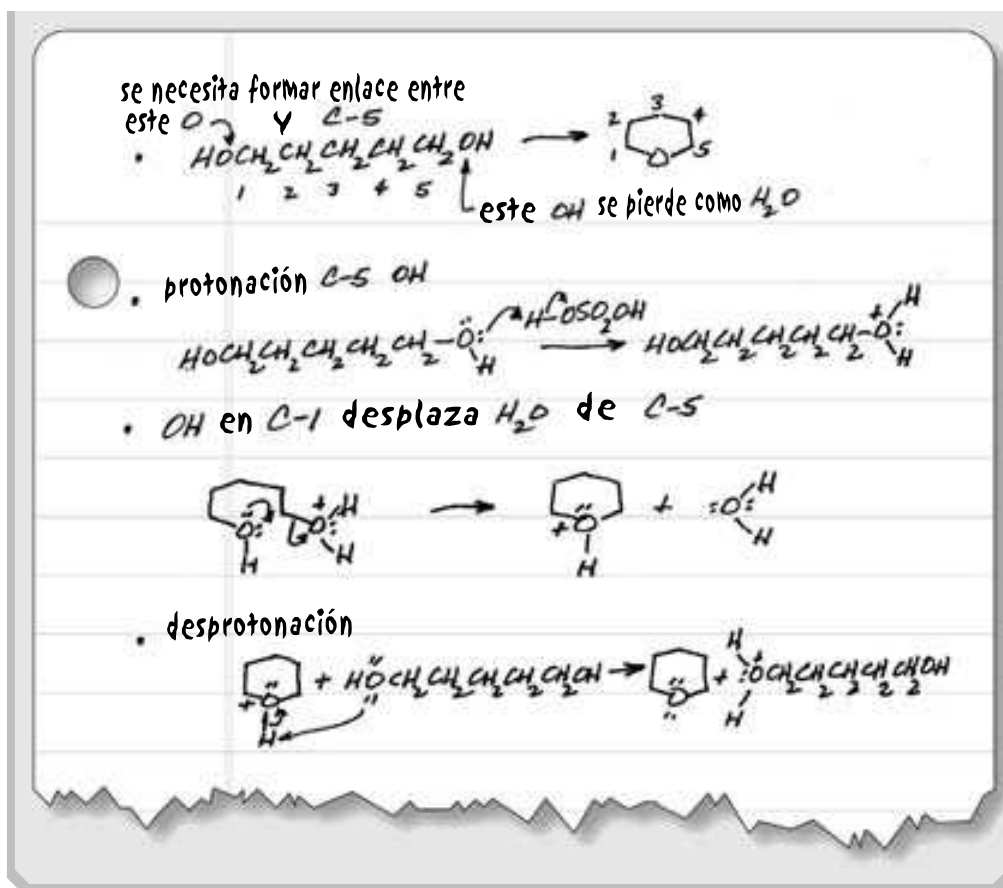 se necesita formar enlace entre
este O Y C-5
• HOCH₂CH₂CH₂CH₂CH₂OH → 1 2 3 4 5 O
1 2 3 4 5
este OH se pierde como H₂O
• protonación C-5 OH
HOCH₂CH₂CH₂CH₂CH₂-Ö: H H-OSO₂OH → HOCH₂CH₂CH₂CH₂CH₂-O: + H H
• OH en C-1 desplaza H₂O de C-5
Ö: H O: + H H → + Ö H + :O: H H
• desprotonación
+ Ö H + HÖCH₂CH₂CH₂CH₂CH₂OH → Ö + H :OCH₂CH₂CH₂CH₂CH₂OH + H